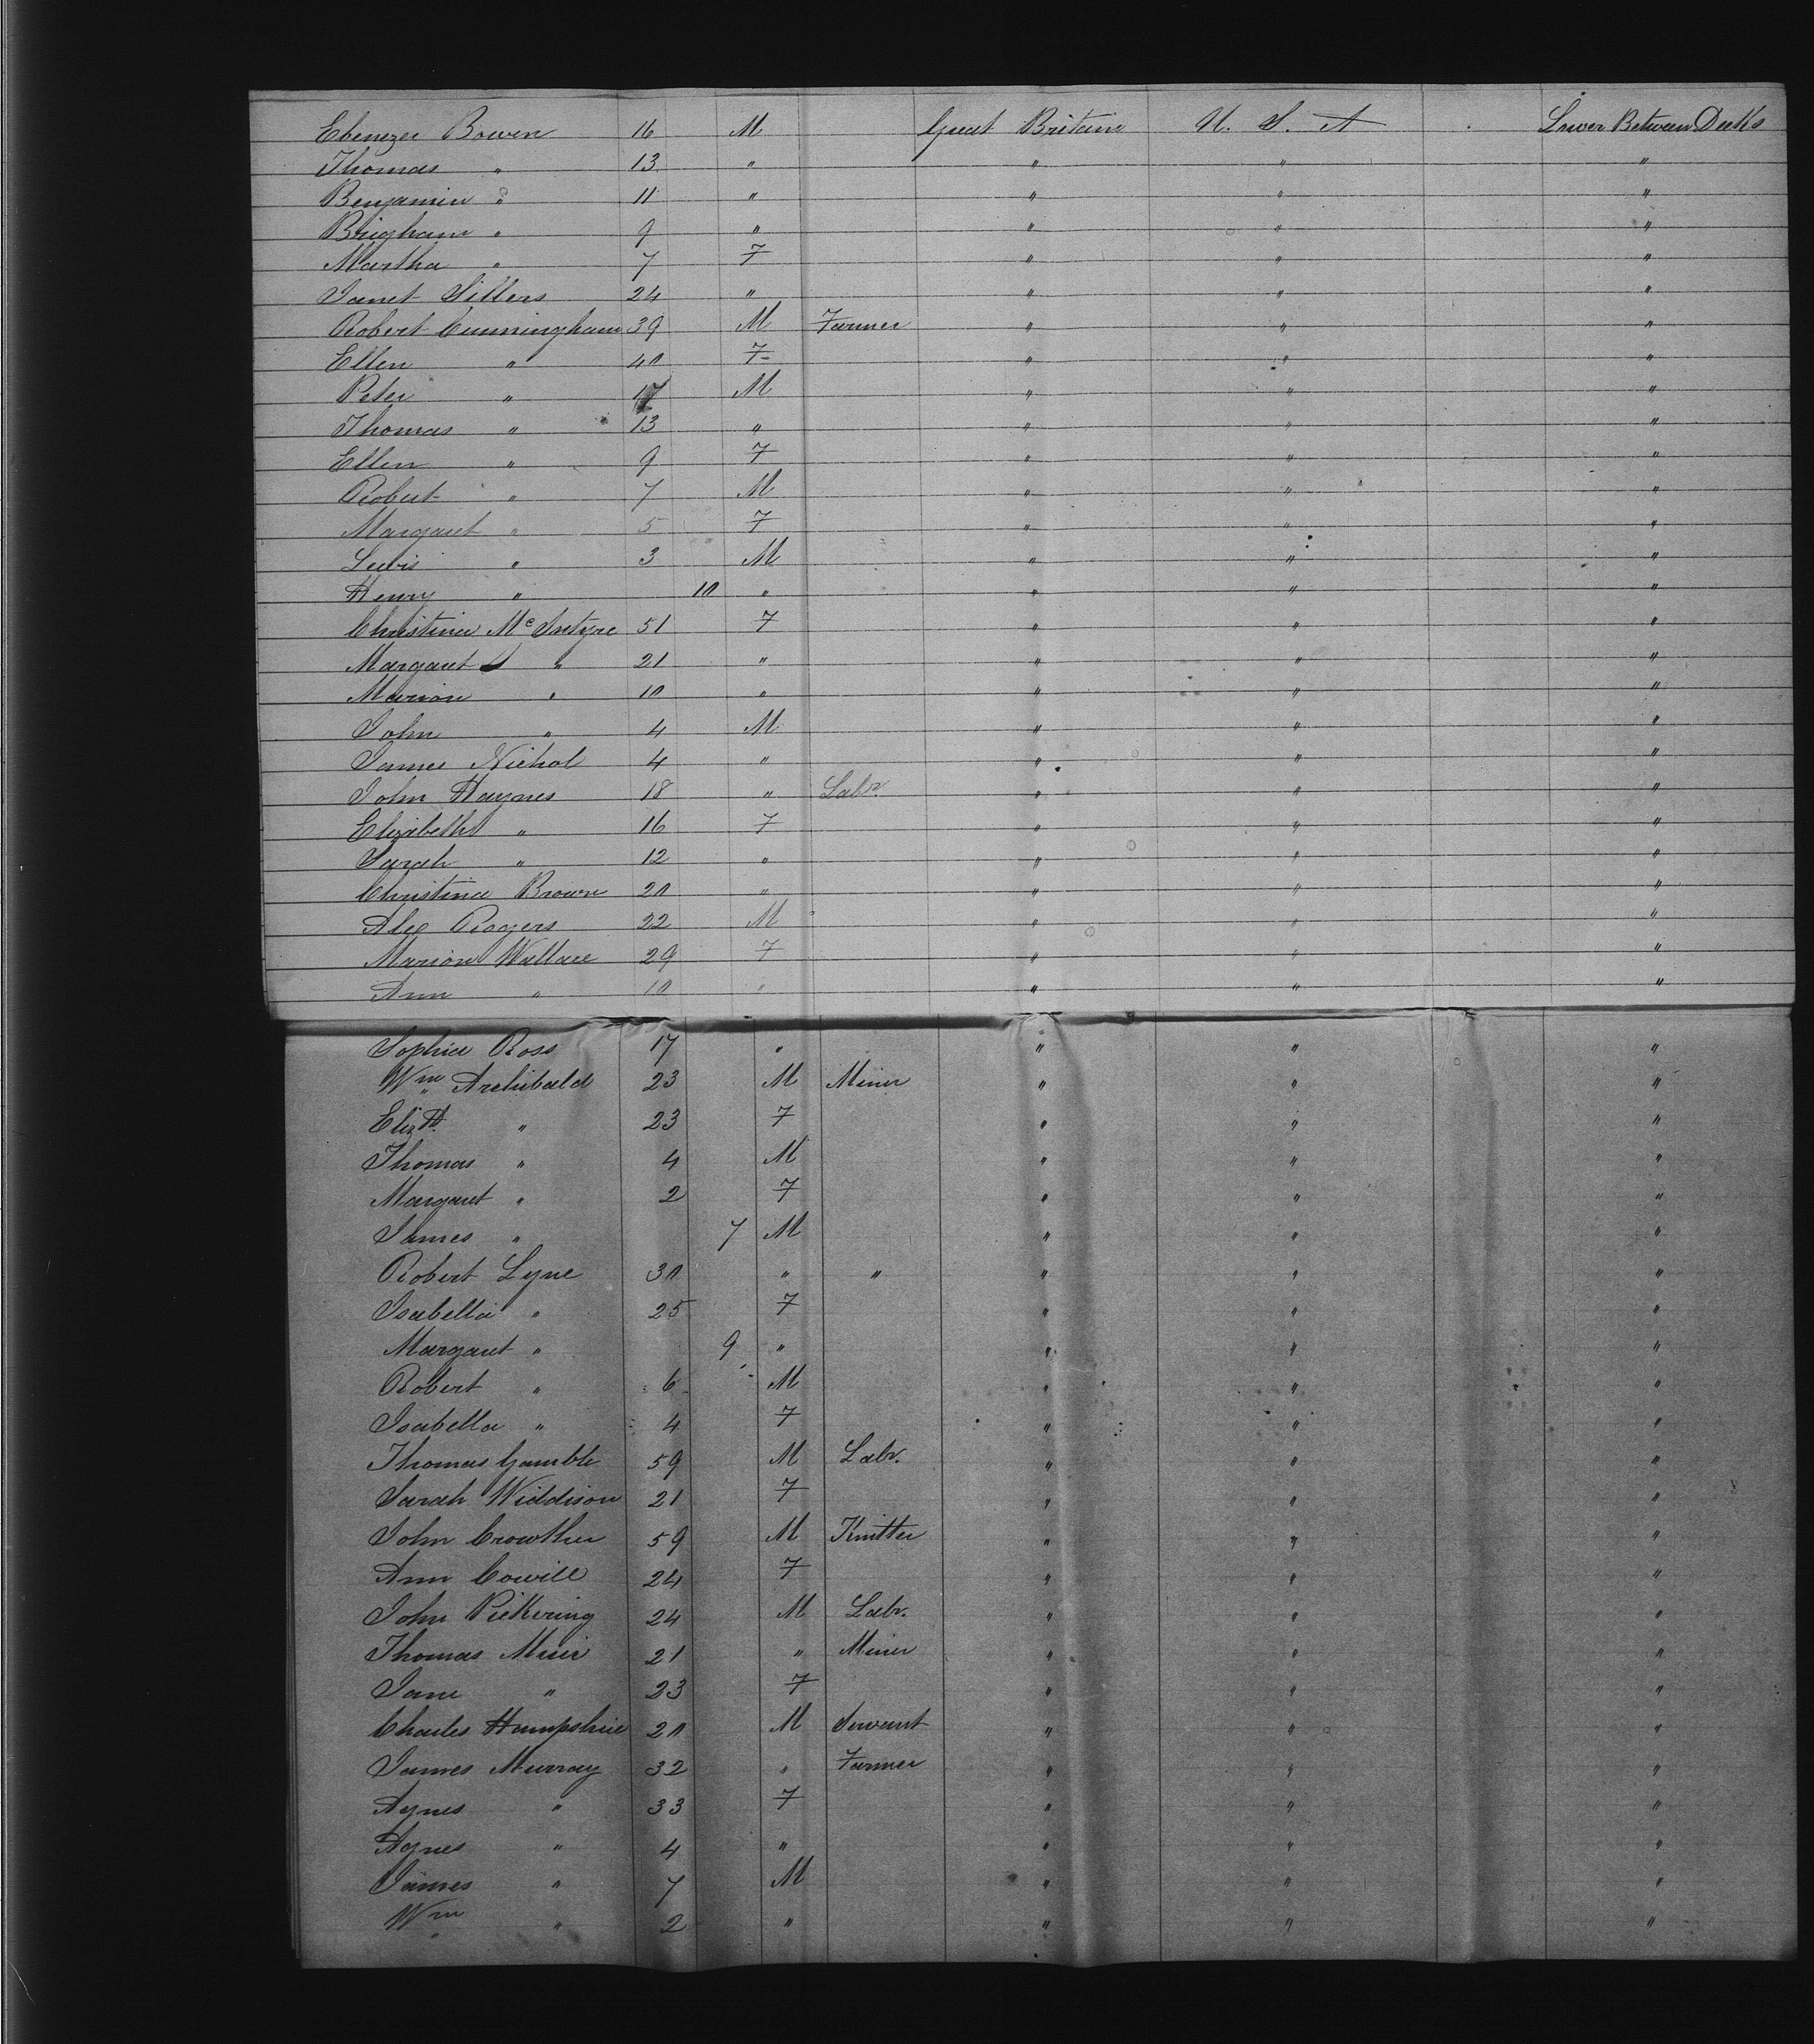 Ebenezer Bowen 16 M Great Britain U. S. A Lower Between Decks
Thomas " 13 " " " "
Benjamin " 11 " " " "
Brigham " 9 " " " "
Martha " 7 F " " "
Janet Sillers 24 " " " "
Robert Cunningham 39 M Farmer " " "
Ellen " 40 F " " "
Peter " 17 M " " "
Thomas " 13 " " " "
Ellen " 9 F " " "
Robert " 7 M " " "
Margaret " 5 F " " "
Lewis " 3 M " " "
Henry " 10 " " " "
Christina McIntyre 51 F " " "
Margaret " 21 " " " "
Marion " 10 " " " "
John " 4 M " " "
James Nichol 4 " " " "
John Haynes 18 " Labr. " " "
Elizabeth " 16 F " " "
Sarah " 12 " " " "
Christina Brown 20 " " " "
Alex Rogers 22 M " " "
Marion Wallace 29 F " " "
Ann " 10 " " " "
Sophia Ross 17 " " " "
Wm Archibald 23 M Miner " " "
Elizth " 23 F " " "
Thomas " 4 M " " "
Margaret " 2 F " " "
James " 7 M " " "
Robert Lyne 30 " " " " "
Isabella " 25 F " " "
Margaret " 9 " " " "
Robert " 6 M " " "
Isabella " 4 F " " "
Thomas Gamble 59 M Labr. " " "
Sarah Widdison 21 F " " "
John Crowther 59 M Knitter " " "
Ann Cowill 24 F " " "
John Pickering 24 M Labr. " " "
Thomas Muir 21 " Miner " " "
Jane " 23 F " " "
Charles Hampshire 20 M Servant " " "
James Murray 32 " Farmer " " "
Agnes " 33 F " " "
Agnes " 4 " " " "
James " 7 M " " "
Wm " 2 " " " "